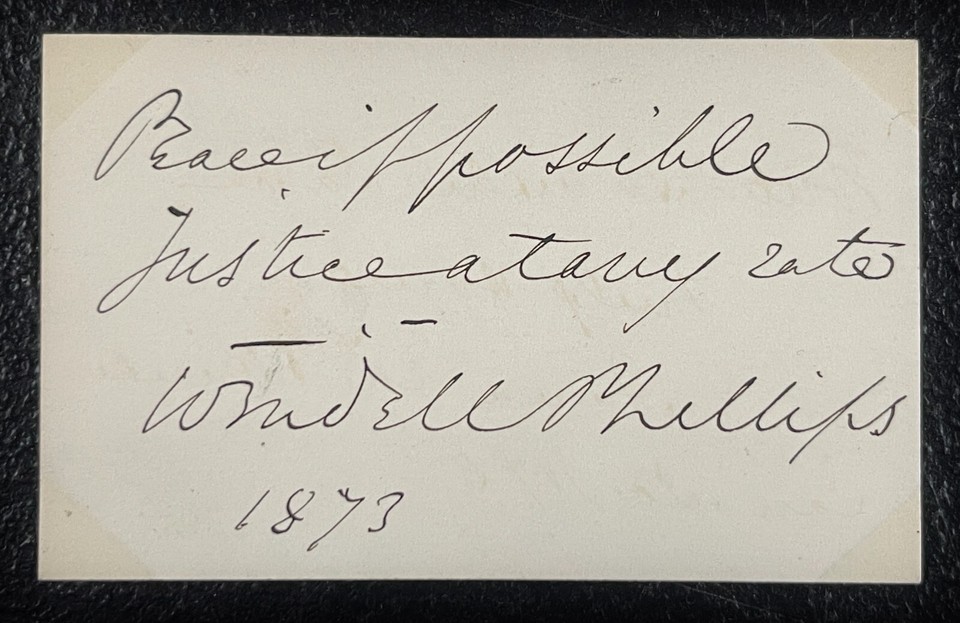 Peace if possible
Justice at any rate
Wendell Phillips
1873